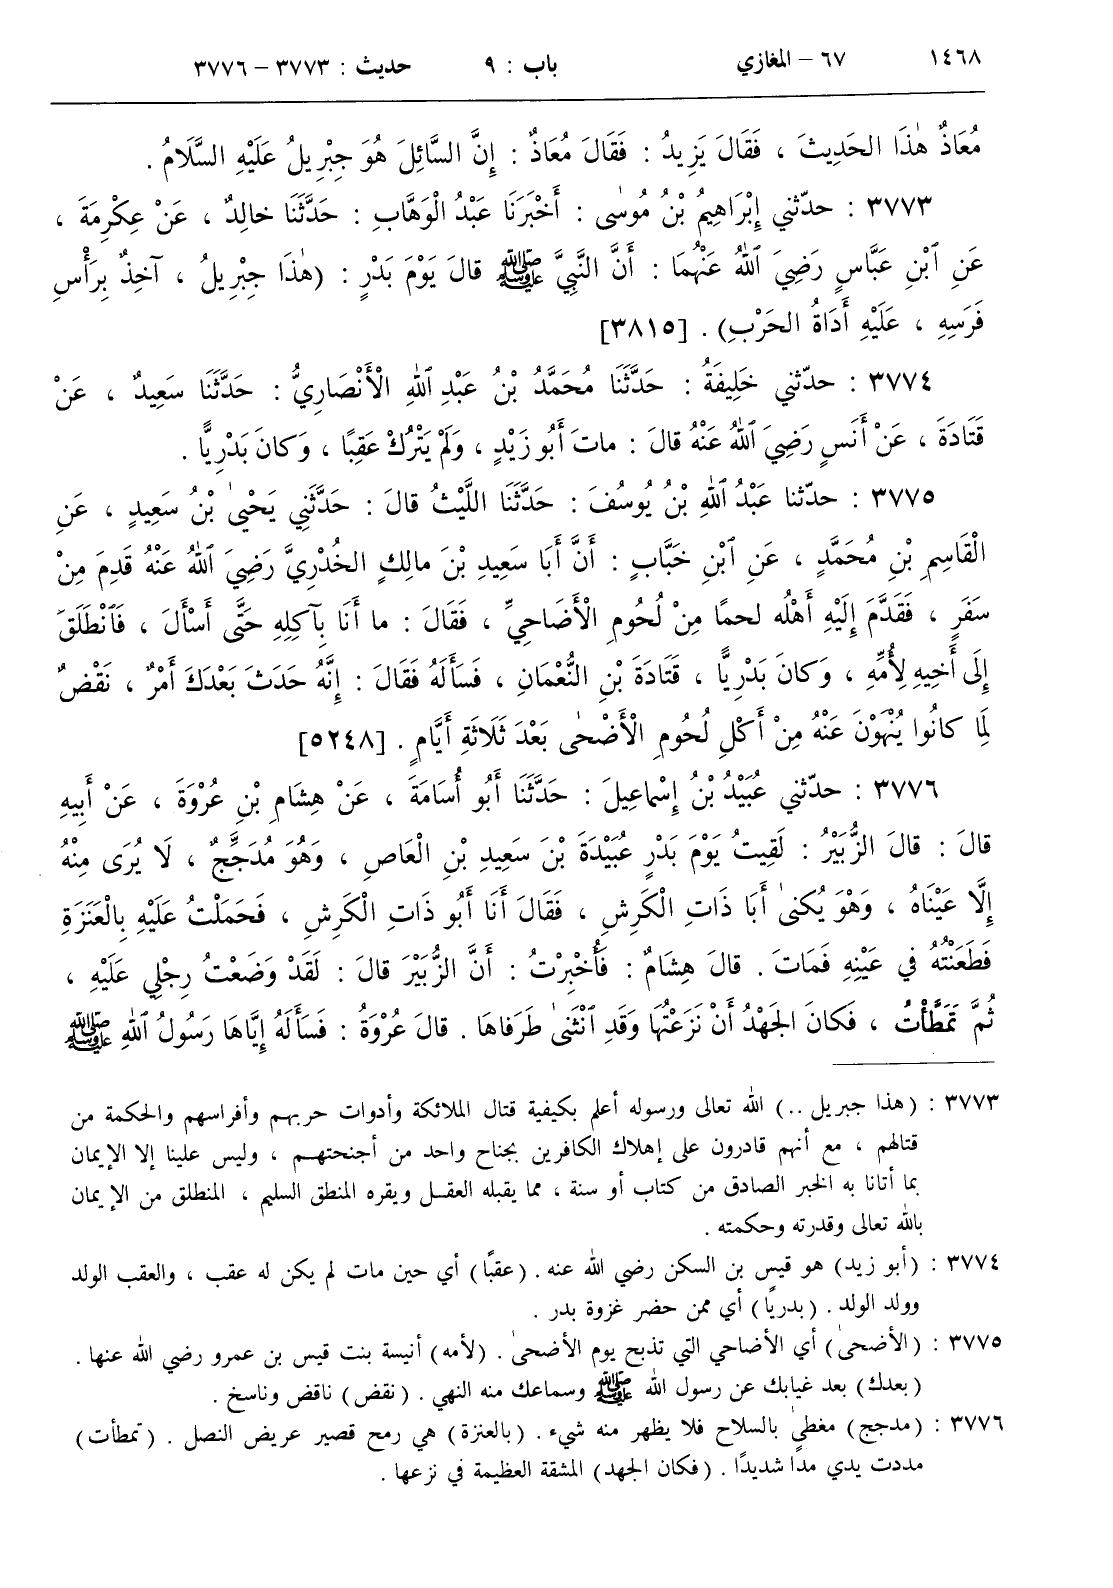 ١٤٦٨ ٦٧ – المغازي باب : ٩ حديث : ٣٧٧٣ – ٣٧٧٦
مُعَاذٌ هٰذَا الحَدِيثَ ، فَقَالَ يَزِيدُ : فَقَالَ مُعَاذٌ : إِنَّ السَّائِلَ هُوَ جِبْرِيلُ عَلَيْهِ السَّلَامُ .
٣٧٧٣ : حدّثني إِبْرَاهِيمُ بْنُ مُوسٰى : أَخْبَرَنَا عَبْدُ الْوَهَّابِ : حَدَّثَنَا خالِدٌ ، عَنْ عِكْرِمَةَ ،
عَنِ ٱبْنِ عَبَّاسٍ رَضِيَ ٱللهُ عَنْهُمَا : أَنَّ النَّبِيَّ ﷺ قالَ يَوْمَ بَدْرٍ : (هٰذَا جِبْرِيلُ ، آخِذٌ بِرَأْسِ
فَرَسِهِ ، عَلَيْهِ أَدَاةُ الحَرْبِ) . [٣٨١٥]
٣٧٧٤ : حدّثني خَلِيفَةُ : حَدَّثَنَا مُحَمَّدُ بْنُ عَبْدِ ٱللهِ الْأَنْصَارِيُّ : حَدَّثَنَا سَعِيدٌ ، عَنْ
قَتَادَةَ ، عَنْ أَنَسٍ رَضِيَ ٱللهُ عَنْهُ قالَ : ماتَ أَبُو زَيْدٍ ، وَلَمْ يَتْرُكْ عَقِبًا ، وَكانَ بَدْرِيًّا .
٣٧٧٥ : حدّثنا عَبْدُ ٱللهِ بْنُ يُوسُفَ : حَدَّثَنَا اللَّيْثُ قالَ : حَدَّثَنِي يَحْيىٰ بْنُ سَعِيدٍ ، عَنِ
الْقَاسِمِ بْنِ مُحَمَّدٍ ، عَنِ ٱبْنِ خَبَّابٍ : أَنَّ أَبَا سَعِيدِ بْنَ مالِكٍ الخُدْرِيَّ رَضِيَ ٱللهُ عَنْهُ قَدِمَ مِنْ
سَفَرٍ ، فَقَدَّمَ إِلَيْهِ أَهْلُه لحمًا مِنْ لُحُومِ الْأَضَاحِيِّ ، فَقَالَ : ما أَنَا بِآكِلِهِ حَتَّى أَسْأَلَ ، فَٱنْطَلَقَ
إِلَى أَخِيهِ لِأُمِّهِ ، وَكانَ بَدْرِيًّا ، قَتَادَةَ بْنِ النُّعْمَانِ ، فَسَأَلَهُ فَقَالَ : إِنَّهُ حَدَثَ بَعْدَكَ أَمْرٌ ، نَقْضٌ
لِمَا كانُوا يُنْهَوْنَ عَنْهُ مِنْ أَكْلِ لُحُومِ الْأَضْحٰى بَعْدَ ثَلَاثَةِ أَيَّامٍ . [٥٢٤٨]
٣٧٧٦ : حدّثني عُبَيْدُ بْنُ إِسْماعِيلَ : حَدَّثَنَا أَبُو أُسَامَةَ ، عَنْ هِشَامِ بْنِ عُرْوَةَ ، عَنْ أَبِيهِ
قالَ : قالَ الزُّبَيْرُ : لَقِيتُ يَوْمَ بَدْرٍ عُبَيْدَةَ بْنَ سَعِيدِ بْنِ الْعَاصِ ، وَهُوَ مُدَجَّجٌ ، لَا يُرَى مِنْهُ
إِلَّا عَيْنَاهُ ، وَهْوَ يُكنىٰ أَبَا ذَاتِ الْكَرِشِ ، فَقَالَ أَنَا أَبُو ذَاتِ الْكَرِشِ ، فَحَمَلْتُ عَلَيْهِ بِالْعَنَزَةِ
فَطَعَنْتُهُ في عَيْنِهِ فَمَاتَ . قالَ هِشَامٌ : فَأُخْبِرْتُ : أَنَّ الزُّبَيْرَ قالَ : لَقَدْ وَضَعْتُ رِجْلِي عَلَيْهِ ،
ثُمَّ تَمَطَّأْتُ ، فَكانَ الجَهْدُ أَنْ نَزَعْتُهَا وَقَدِ ٱنْثَنىٰ طَرَفاهَا . قالَ عُرْوَةُ : فَسَأَلَهُ إِيَّاهَا رَسُولُ ٱللهِ ﷺ
٣٧٧٣ : (هذا جبريل ..) الله تعالى ورسوله أعلم بكيفية قتال الملائكة وأدوات حربهم وأفراسهم والحكمة من
قتالهم ، مع أنهم قادرون على إهلاك الكافرين بجناح واحد من أجنحتهم ، وليس علينا إلا الإيمان
بما أتانا به الخبر الصادق من كتاب أو سنة ، مما يقبله العقل ويقره المنطق السليم ، المنطلق من الإيمان
بالله تعالى وقدرته وحكمته .
٣٧٧٤ : (أبو زيد) هو قيس بن السكن رضي الله عنه . (عقبًا) أي حين مات لم يكن له عقب ، والعقب الولد
وولد الولد . (بدريًا) أي ممن حضر غزوة بدر .
٣٧٧٥ : (الأضحىٰ) أي الأضاحي التي تذبح يوم الأضحىٰ . (لأمه) أنيسة بنت قيس بن عمرو رضي الله عنها .
(بعدك) بعد غيابك عن رسول الله ﷺ وسماعك منه النهي . (نقض) ناقض وناسخ .
٣٧٧٦ : (مدجج) مغطىٰ بالسلاح فلا يظهر منه شيء . (بالعنزة) هي رمح قصير عريض النصل . (تمطأت)
مددت يدي مدًا شديدًا . (فكان الجهد) المشقة العظيمة في نزعها .